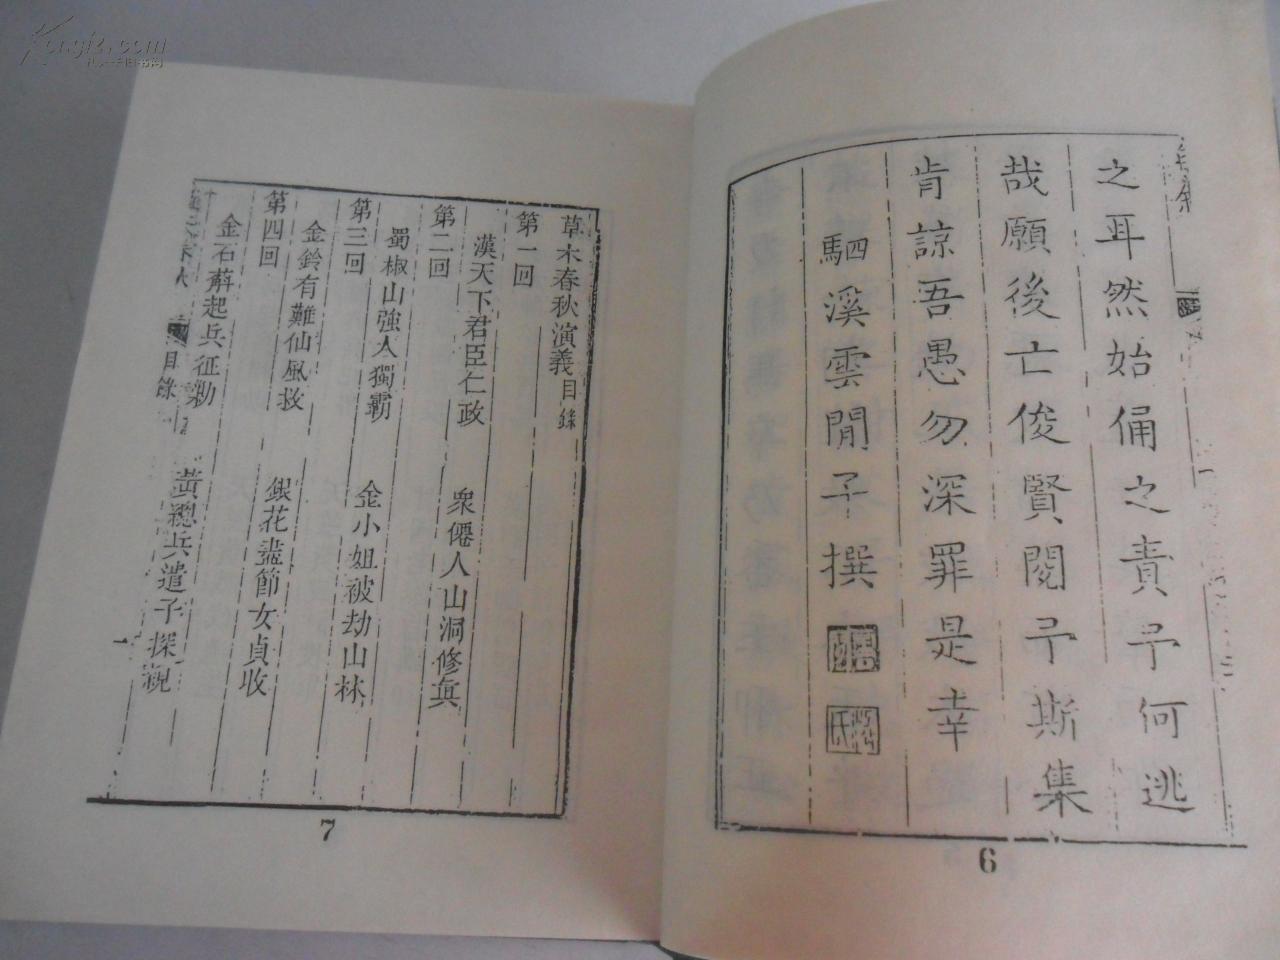 之耳然始俑之責予何逃
哉願後亡俊賢閱予斯集
肯諒吾愚勿深罪是幸
駟溪雲間子撰
6
草木春秋演義目錄
第一回
漢天下君臣仁政　衆僊人山洞修真
第二回
蜀椒山強人獨霸　金小姐被劫山林
第三回
金鈴有難仙風救　銀花盡節女貞收
第四回
金石斛起兵征勦　黃總兵遣子探親
春秋
目錄
一
7
Kongfz.com